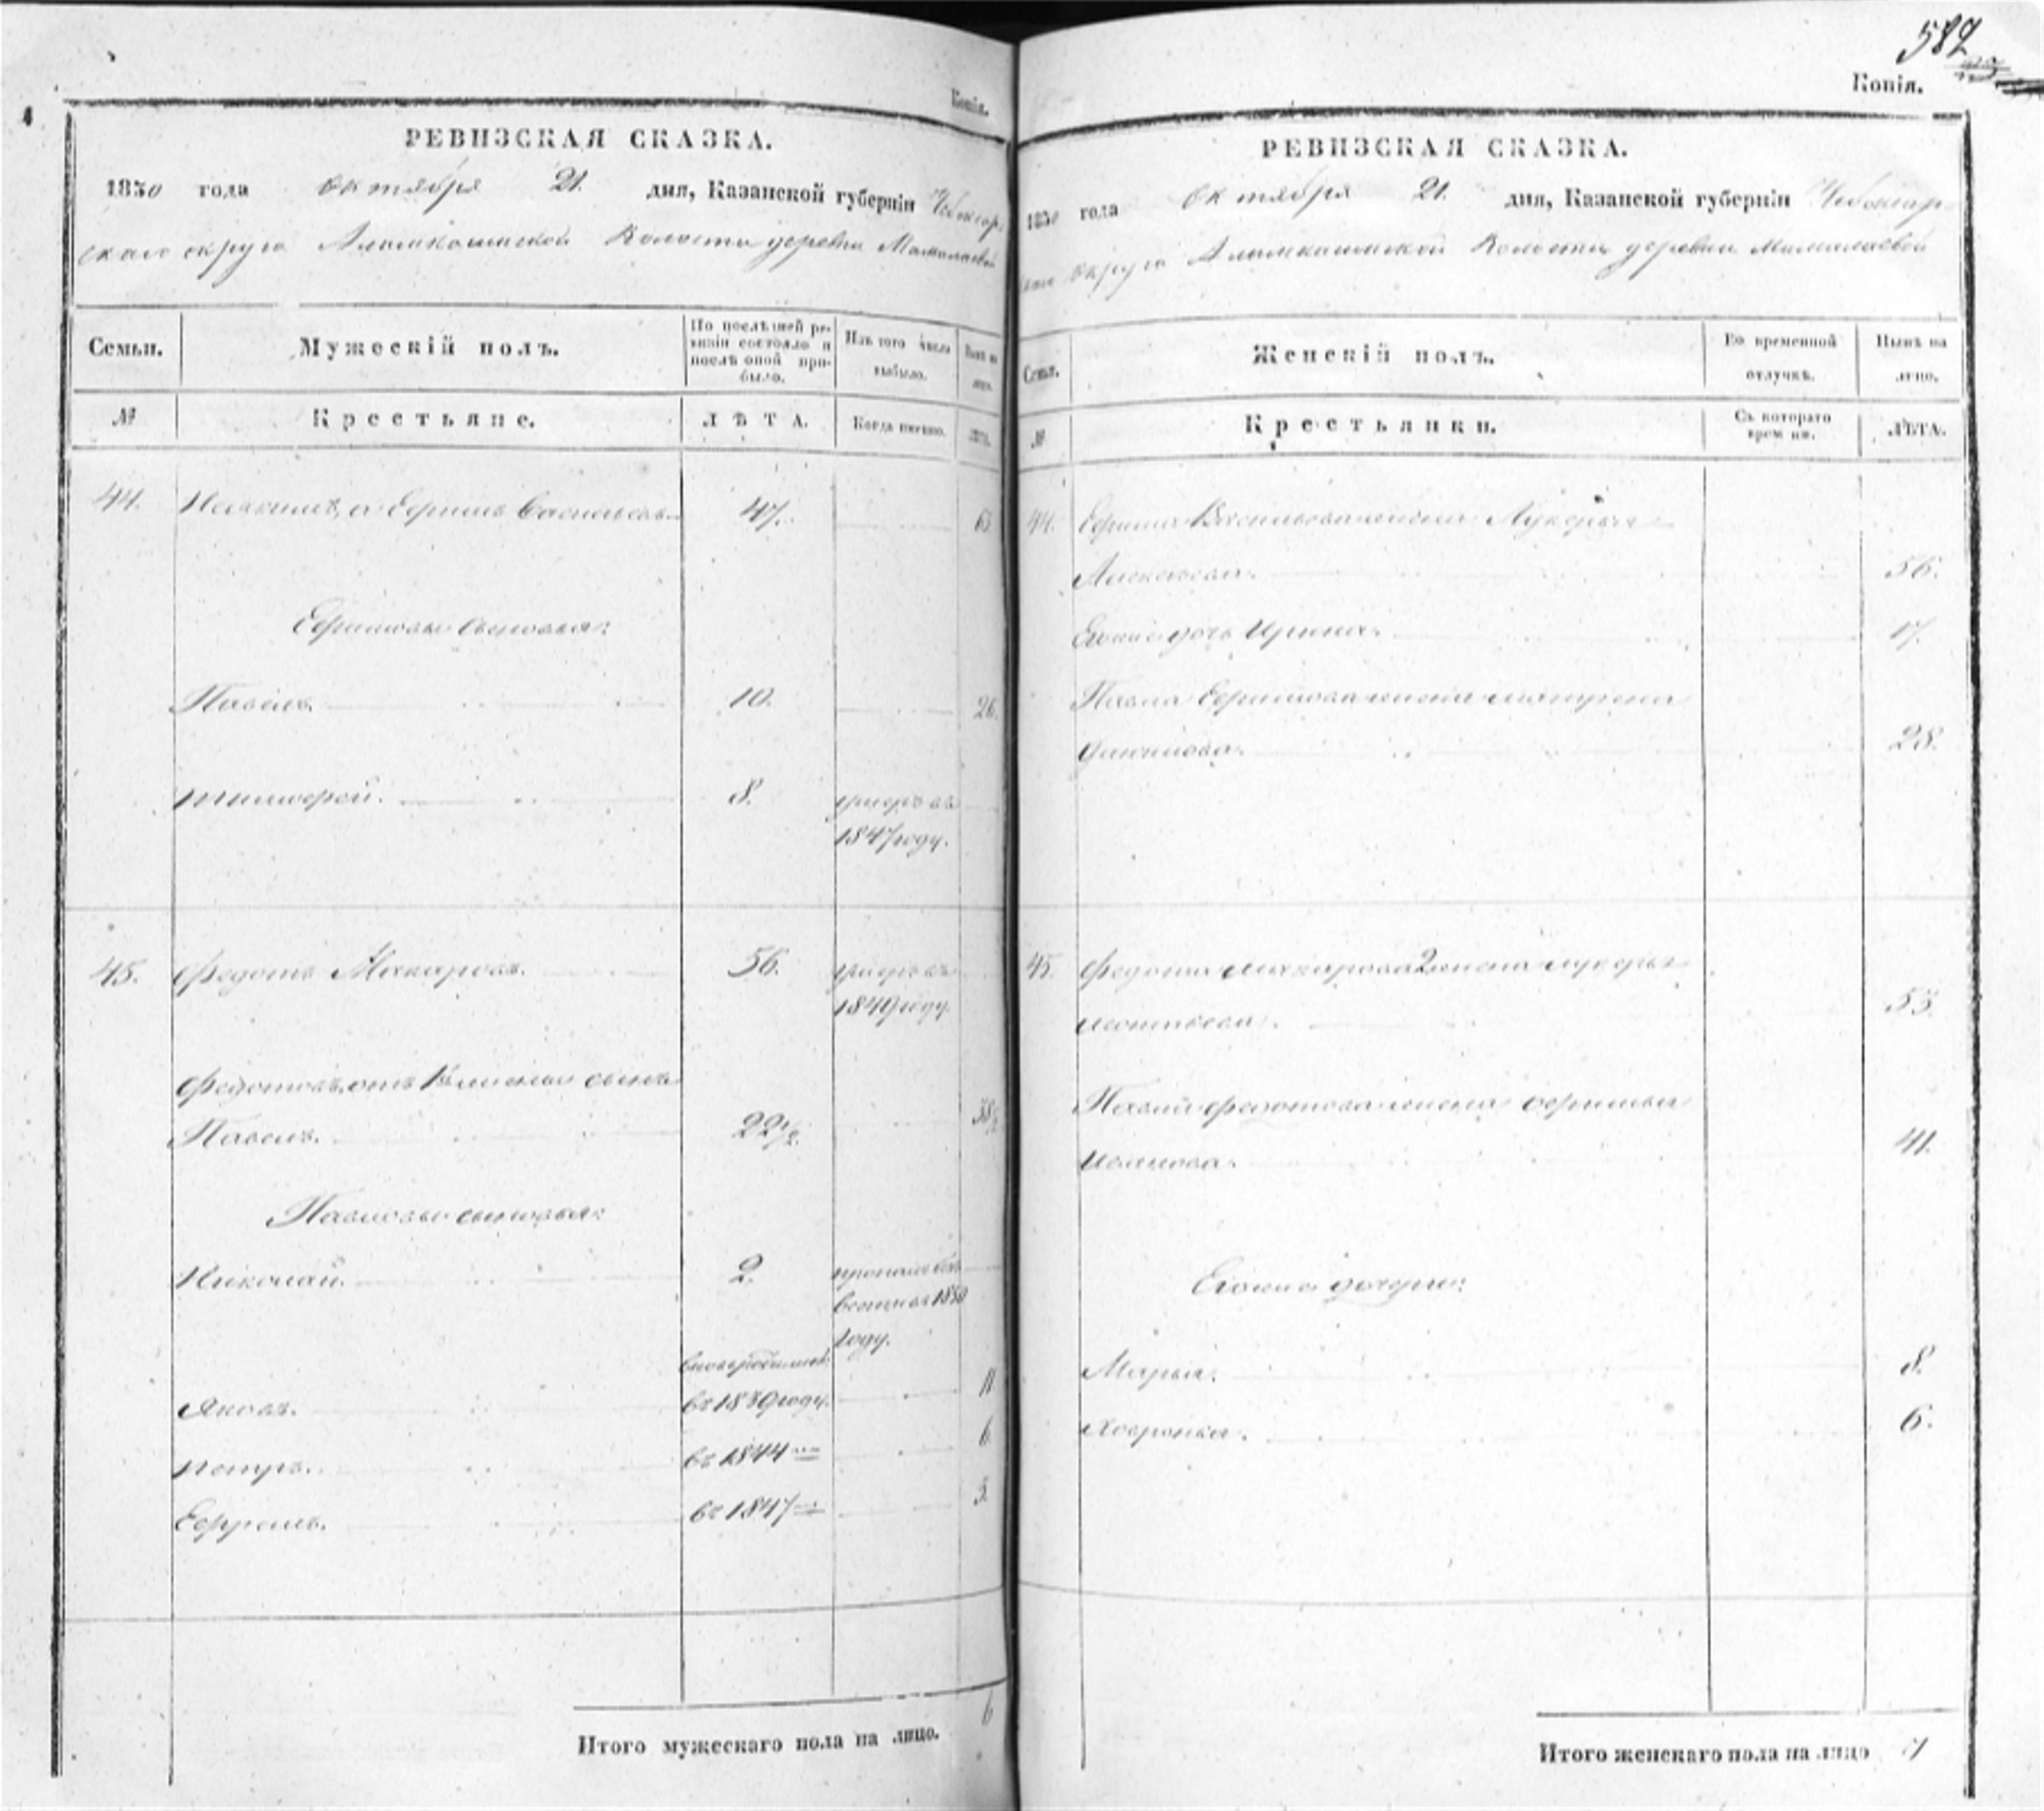 Копія.
РЕВИЗСКАЯ СКАЗКА.
1850 года октября 21. дня, Казанской губерніи Чебоксар-
скаго округа Алымкасинской Волости деревни Мамалаевой
Семьи.
Мужескій полъ.
По послѣдней ре-
визіи состояло и
послѣ оной при-
было.
Изъ того числа
выбыло.
Нынѣ на
лицо.
№
Крестьяне.
ЛѢТА.
Когда именно.
44. Ефимъ Васильевъ 47. 63
Ефимовы сыновья:
Павелъ. 10. 26.
Тимофей. 8. умеръ въ
1847 году.
45. Федотъ Макаровъ. 56. умеръ въ
1849 году.
Федотовъ отъ 1й жены сынъ
Павелъ. 22½. 38½
Павловы сыновья:
Николай. 2. пропалъ безъ
вести въ 1850
году.
вновь рожденный
Яковъ. въ 1839 году. 11
Петръ. въ 1844 6
Ефремъ. въ 1847 3.
6
Итого мужескаго пола на лицо.
582
Копія.
РЕВИЗСКАЯ СКАЗКА.
1850 года октября 21. дня, Казанской губерніи Чебоксар-
скаго округа Алымкасинской Волости деревни Мамалаевой
Семьи.
Женскій полъ.
Во временной
отлучкѣ.
Нынѣ на
лицо.
№
Крестьянки.
Съ котораго
времени.
ЛѢТА.
44. Ефима Васильева жена Лукерья
56.
Его же дочь Ирина. 17.
Павла Ефимова жена Матрена
Данилова. 28.
45. Федота Макарова 2 жена Лукерья
Леонтьева. 53.
Павла Федотова жена Офимья
Иванова. 41.
Его же дочери:
Марья. 8.
Хавронья. 6.
Итого женскаго пола на лицо 7